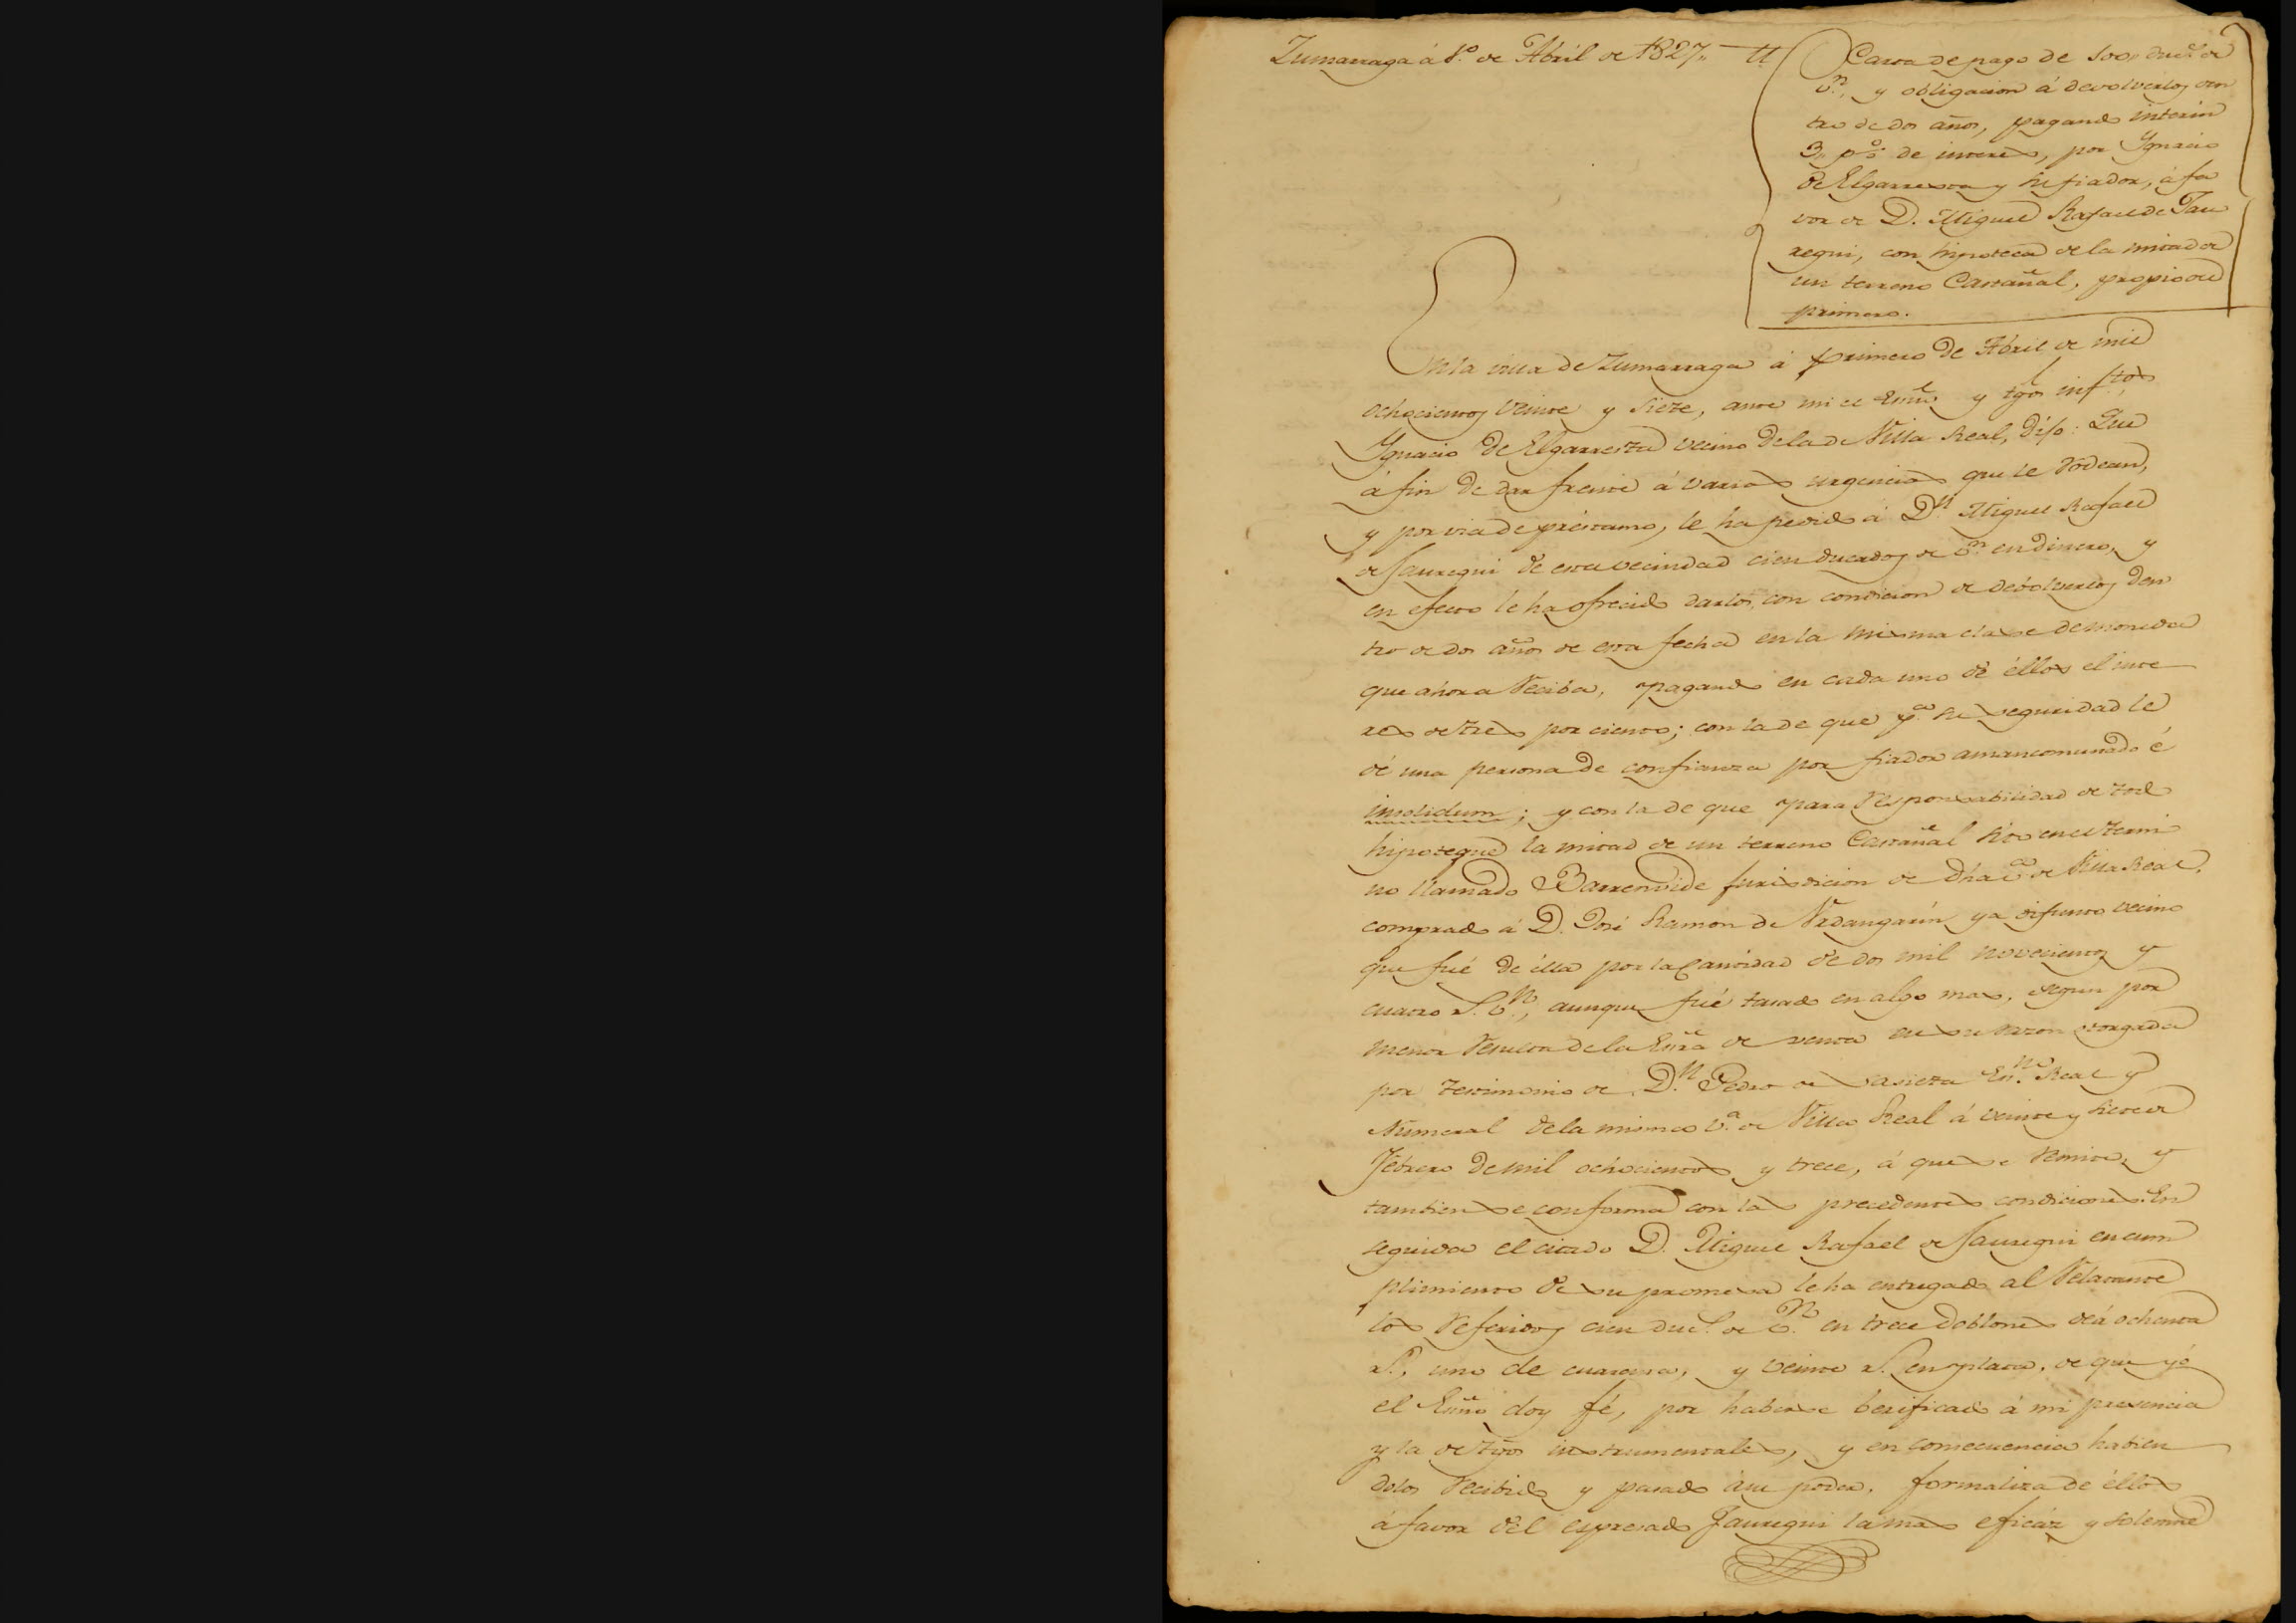 Zumarraga á 1º. de Abril de 1827,, tt
Carta de pago de 100,, duc.s de
v.n, y obligacion á devolverlos den
tro de dos años, pagando interin
3,, p% de interes, por Ygnacio
de Elgarresta y su fiador, á fa
vor de D. Miguel Rafael de Jau
regui, con hipoteca de la mitad de
un terreno Castañal, propio del
primero.
En la villa de Zumarraga á primero de Abril de mil
ochocientos veinte y siete, ante mi el Esñõ y tgõs inf.tos,
Ygnacio de Elgarresta vecino de la de Villa Real, dijo: Que
á fin de dar frente á varias urgencias que le rodean,
y por via de préstamo, le ha pedido á D.n Miguel Rafael
de Jauregui de esta vecindad cien ducados de v.n en dinero, y
en efecto le ha ofrecido darlos, con condicion de debolverlos den
tro de dos años de esta fecha en la misma clase de moneda
que ahora reciba, pagando en cada uno de éllos el inte
res de tres por ciento; con la de que p.a su seguridad le
dé una persona de confianza por fiador amancomunado é
insolidum; y con la de que para responsabilidad de todo
hipoteque la mitad de un terreno Castañal sito en el termi
no llamado Barrenvide jurisdicion de dha v.a de Villa Real,
comprado á D. José Ramon de Urdangarin ya difunto vecino
que fué de élla por la cantidad de dos mil novecientos y
cuatro r.s v.n, aunque fué tasado en algo mas, segun por
menor resulta de la Esrã de venta en su razon otorgada
por testimonio de D.n Pedro de Sasieta Es.no Real y
Numeral de la misma v.a de Villa Real á veinte y siete de
Febrero de mil ochocientos y trece, á que se remite, y
tambien se conforma con las precedentes condiciones. En
seguida el citado D. Miguel Rafael de Jauregui en cum
plimiento de su promesa le ha entregado al relatante
los referidos cien duc.s de v.n en trece doblones de á ochenta
r.s, uno de cuarenta, y veinte r.s en plata, de que yó
el Esñõ doy fé, por haberse berificado á mi presencia
y la de tgõs instrumentales, y en consecuencia habien
dolos recibido y pasado á su poder, formaliza de éllos
á favor del expresado Jauregui la mas eficáz y solemne